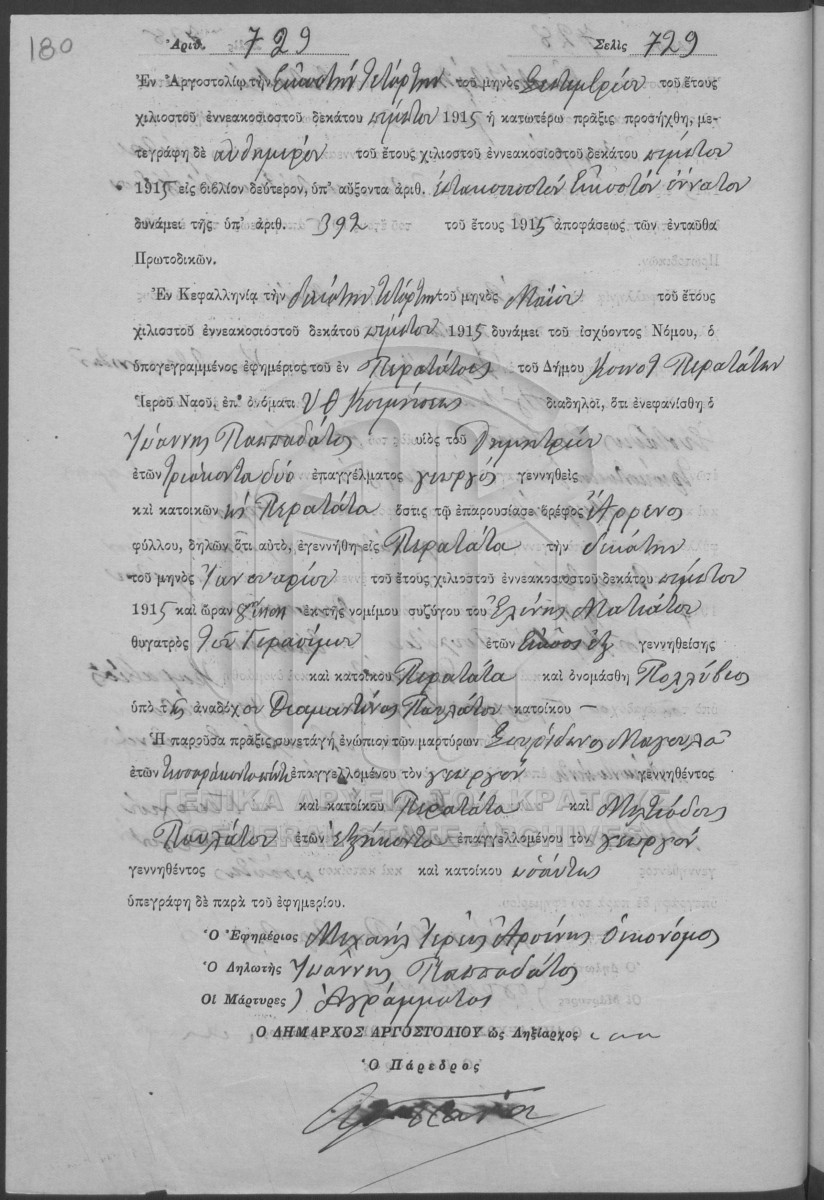 180
Ἀριθ. 729 Σελὶς 729
Ἐν Ἀργοστολίῳ τὴν Εἰκοστὴν τετάρτην τοῦ μηνὸς Σεπτεμβρίου τοῦ ἔτους
χιλιοστοῦ ἐννεακοσιοστοῦ δεκάτου πέμπτου 1915 ἡ κατωτέρω πρᾶξις προσήχθη, με-
τεγράφη δὲ αὐθημερόν τοῦ ἔτους χιλιοστοῦ ἐννεακοσιοστοῦ δεκάτου πέμπτου
1915 εἰς βιβλίον δεύτερον, ὑπ' αὔξοντα ἀριθ. ἑπτακοσιοστόν Εἰκοστόν ἔννατον
δυνάμει τῆς ὑπ' ἀριθ. 392 τοῦ ἔτους 1915 ἀποφάσεως τῶν ἐνταῦθα
Πρωτοδικῶν.
Ἐν Κεφαλληνίᾳ τὴν δεκάτην τετάρτην τοῦ μηνὸς Μαΐου τοῦ ἔτους
χιλιοστοῦ ἐννεακοσιοστοῦ δεκάτου πέμπτου 1915 δυνάμει τοῦ ἰσχύοντος Νόμου, ὁ
ὑπογεγραμμένος ἐφημέριος τοῦ ἐν Περατάτοις τοῦ Δήμου Κοινοτ Περατάτων
Ἱεροῦ Ναοῦ, ἐπ' ὀνόματι Υ Θ Κοιμήσεως διαδηλοῖ, ὅτι ἐνεφανίσθη ὁ
Ἰωάννης Παππαδάτος υἱὸς τοῦ Δημητρίου
ἐτῶν τριάκοντα δύο ἐπαγγέλματος γεωργός γεννηθεὶς
καὶ κατοικῶν εἰς Περατάτα ὅστις τῷ ἐπαρουσίασε βρέφος Ἄρρενος
φύλλου, δηλῶν ὅτι αὐτὸ, ἐγεννήθη εἰς Περατάτα τὴν δεκάτην
τοῦ μηνὸς Ἰανουαρίου τοῦ ἔτους χιλιοστοῦ ἐννεακοσιοστοῦ δεκάτου πέμπτου
1915 καὶ ὥραν ἐκ τῆς νομίμου συζύγου του Ἑλένης Ματιάτου
θυγατρὸς τοῦ Γερασίμου ἐτῶν Εἴκοσι ἕξ γεννηθείσης
καὶ κατοίκου Περατάτα καὶ ὀνομάσθη Πολλύβιος
ὑπὸ τῆς ἀναδόχου Διαμαντίνας Παυλάτου κατοίκου —
Ἡ παροῦσα πρᾶξις συνετάγη ἐνώπιον τῶν μαρτύρων Σπυρίδωνος Μαγουλᾶ
ἐτῶν τεσσαράκοντα πέντε ἐπαγγελλομένου τὸν γεωργόν γεννηθέντος
καὶ κατοίκου Περατάτα καὶ Μιλτιάδους
Παυλάτου ἐτῶν ἑξήκοντα ἐπαγγελλομένου τὸν γεωργόν
γεννηθέντος καὶ κατοίκου ὡσαύτως
ὑπεγράφη δὲ παρὰ τοῦ ἐφημερίου.
Ὁ Ἐφημέριος Μιχαήλ Ἱερεύς Οἰκονόμος
Ὁ Δηλωτὴς Ἰωάννης Παππαδάτος
Οἱ Μάρτυρες) Ἀγράμματοι
Ο ΔΗΜΑΡΧΟΣ ΑΡΓΟΣΤΟΛΙΟΥ ὡς Ληξίαρχος
Ὁ Πάρεδρος
ΓΕΝΙΚΑ ΑΡΧΕΙΑ ΤΟΥ ΚΡΑΤΟΥΣ
GENERAL STATE ARCHIVES